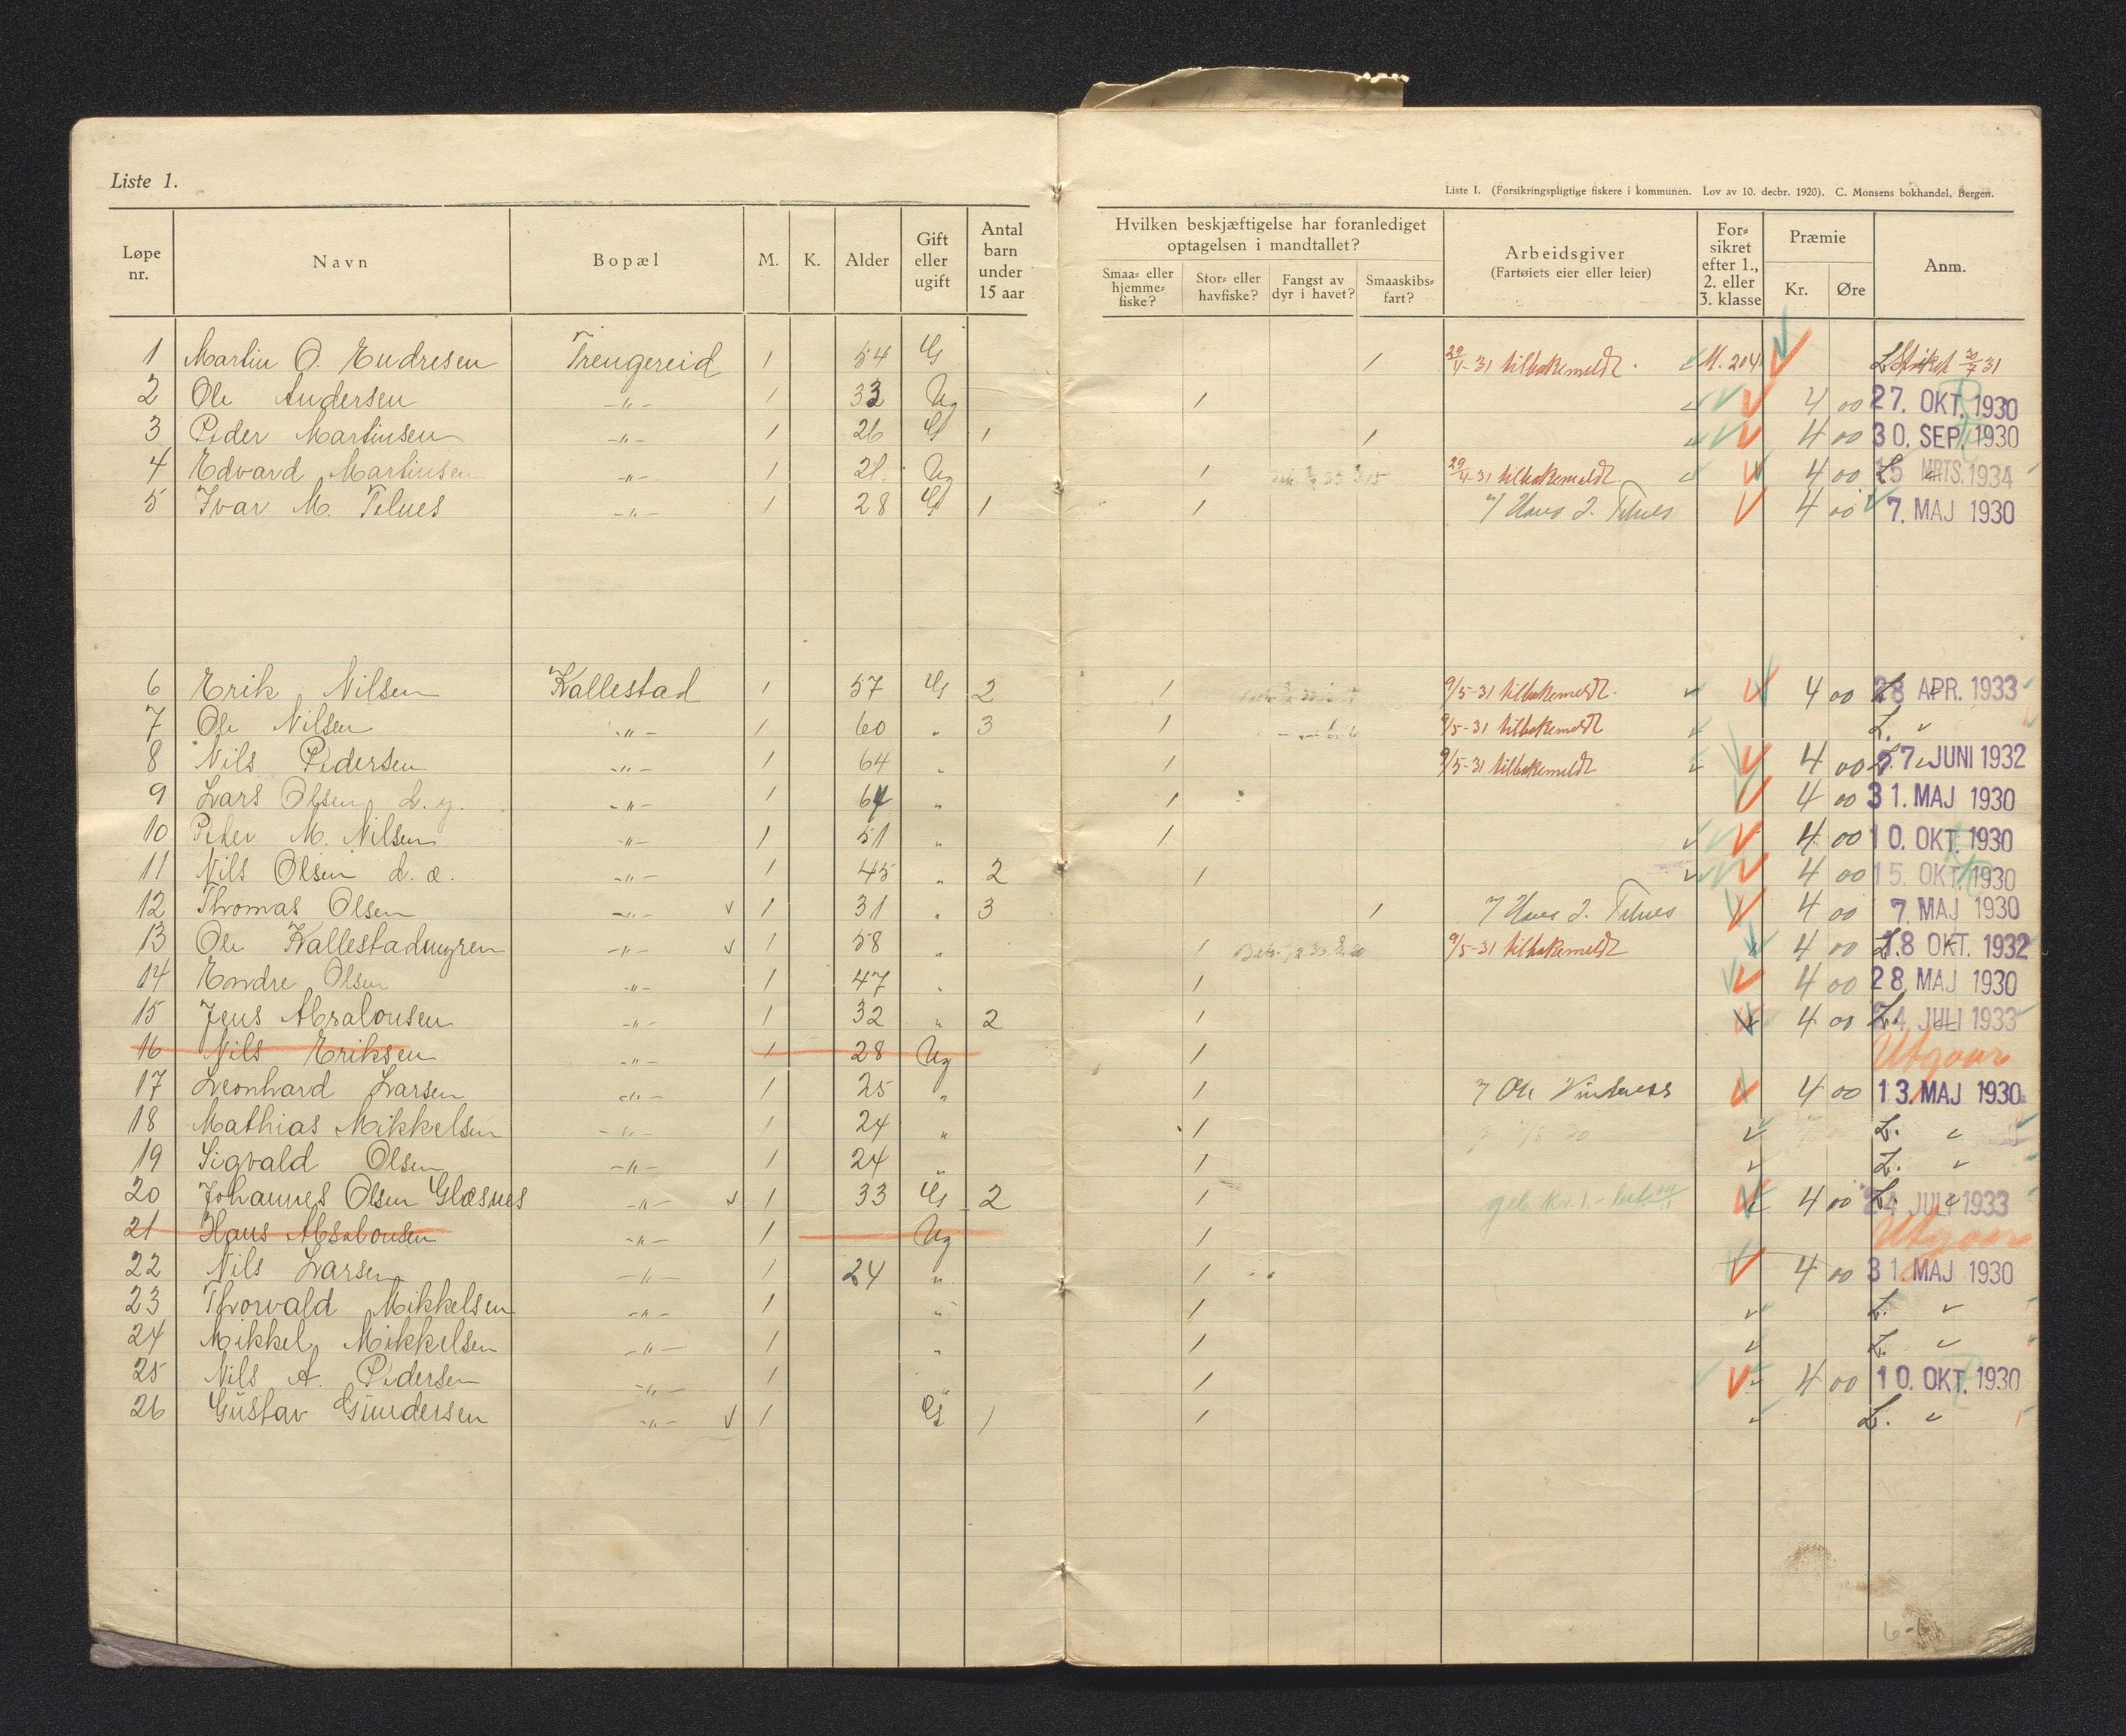 Liste 1.
Liste I. (Forsikringspligtige fiskere i kommunen. Lov av 10. decbr. 1920). C. Monsens bokhandel, Bergen.
Løpe nr. Navn Bopæl M. K. Alder Gift eller ugift Antal barn under 15 aar
Hvilken beskjæftigelse har foranlediget optagelsen i mandtallet?
Smaa- eller hjemme-fiske? Stor- eller havfiske? Fangst av dyr i havet? Smaaskibs-fart?
Arbeidsgiver (Fartøiets eier eller leier) For-sikret efter 1., 2. eller 3. klasse Præmie Kr. Øre Anm.
1 Martin O. Endresen Trengereid 1 54 G 1 29/4-31 tilbakemeldt. M. 204
2 Ole Andersen -"- 1 33 Ug 1 4 00 27. OKT. 1930
3 Peder Martinsen -"- 1 26 G 1 1 4 00 30. SEP. 1930
4 Edvard Martinsen -"- 1 21 Ug 1 29/4-31 tilbakemeldt. 4 00 L 15 MRTS. 1934
5 Ivar M. Telnes -"- 1 28 G 1 1 Hans J. Telnes 4 00 7. MAJ 1930
6 Erik Nilsen Kallestad 1 57 G 2 1 9/5-31 tilbakemeldt. 4 00 L 28 APR. 1933
7 Ole Nilsen -"- 1 60 " 3 1 9/5-31 tilbakemeldt L. "
8 Nils Pedersen -"- 1 64 " 1 9/5-31 tilbakemeldt 4 00 27 JUNI 1932
9 Lars Olsen d. y. -"- 1 64 " 1 4 00 31. MAJ 1930
10 Peder M. Nilsen -"- 1 51 " 1 4 00 10. OKT. 1930
11 Nils Olsen d. æ. -"- 1 45 " 2 1 4 00 15. OKT. 1930
12 Thomas Olsen -"- 1 31 " 3 1 Hans J. Telnes 4 00 7. MAJ 1930
13 Ole Kallestadmyren -"- 1 58 " 1 9/5-31 tilbakemeldt 4 00 18 OKT. 1932
14 Endre Olsen -"- 1 47 " 1 4 00 28. MAJ 1930
15 Jens Absalonsen -"- 1 32 " 2 1 4 00 L. 24 JULI 1933
16 Nils Eriksen -"- 1 28 Ug 1 Utgaar
17 Leonhard Larsen -"- 1 25 " 1 Ole Vindenes 4 00 13. MAJ 1930
18 Mathias Mikkelsen -"- 1 24 " 1 L. "
19 Sigvald Olsen -"- 1 24 " 1 L. "
20 Johannes Olsen Glæsnes -"- 1 33 G 2 1 4 00 L. 24 JULI 1933
21 Hans Absalonsen -"- 1 Ug 1 Utgaar
22 Nils Larsen -"- 1 24 " 1 4 00 31. MAJ 1930
23 Thorvald Mikkelsen -"- 1 " 1 L. "
24 Mikkel Mikkelsen -"- 1 " 1 L. "
25 Nils A. Pedersen -"- 1 " 1 4 00 10. OKT. 1930
26 Gustav Gundersen -"- 1 G 1 1 L. "